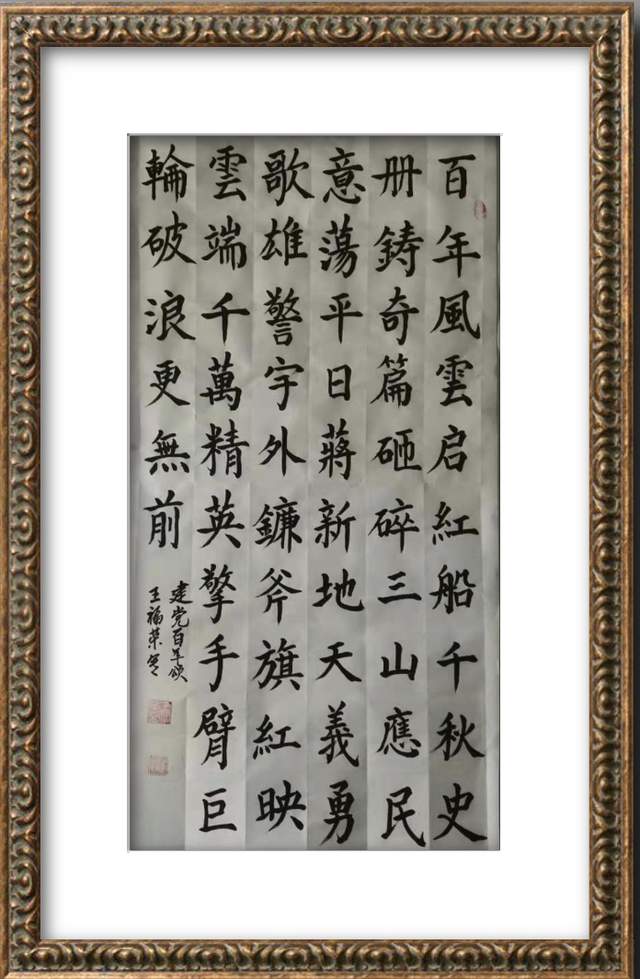 百年風雲启紅船千秋史
册鋳奇篇砸碎三山應民
意蕩平日蔣新地天義勇
歌雄警宇外鐮斧旗紅映
雲端千萬精英擎手臂巨
輪破浪更無前
建党百年颂
王福荣书